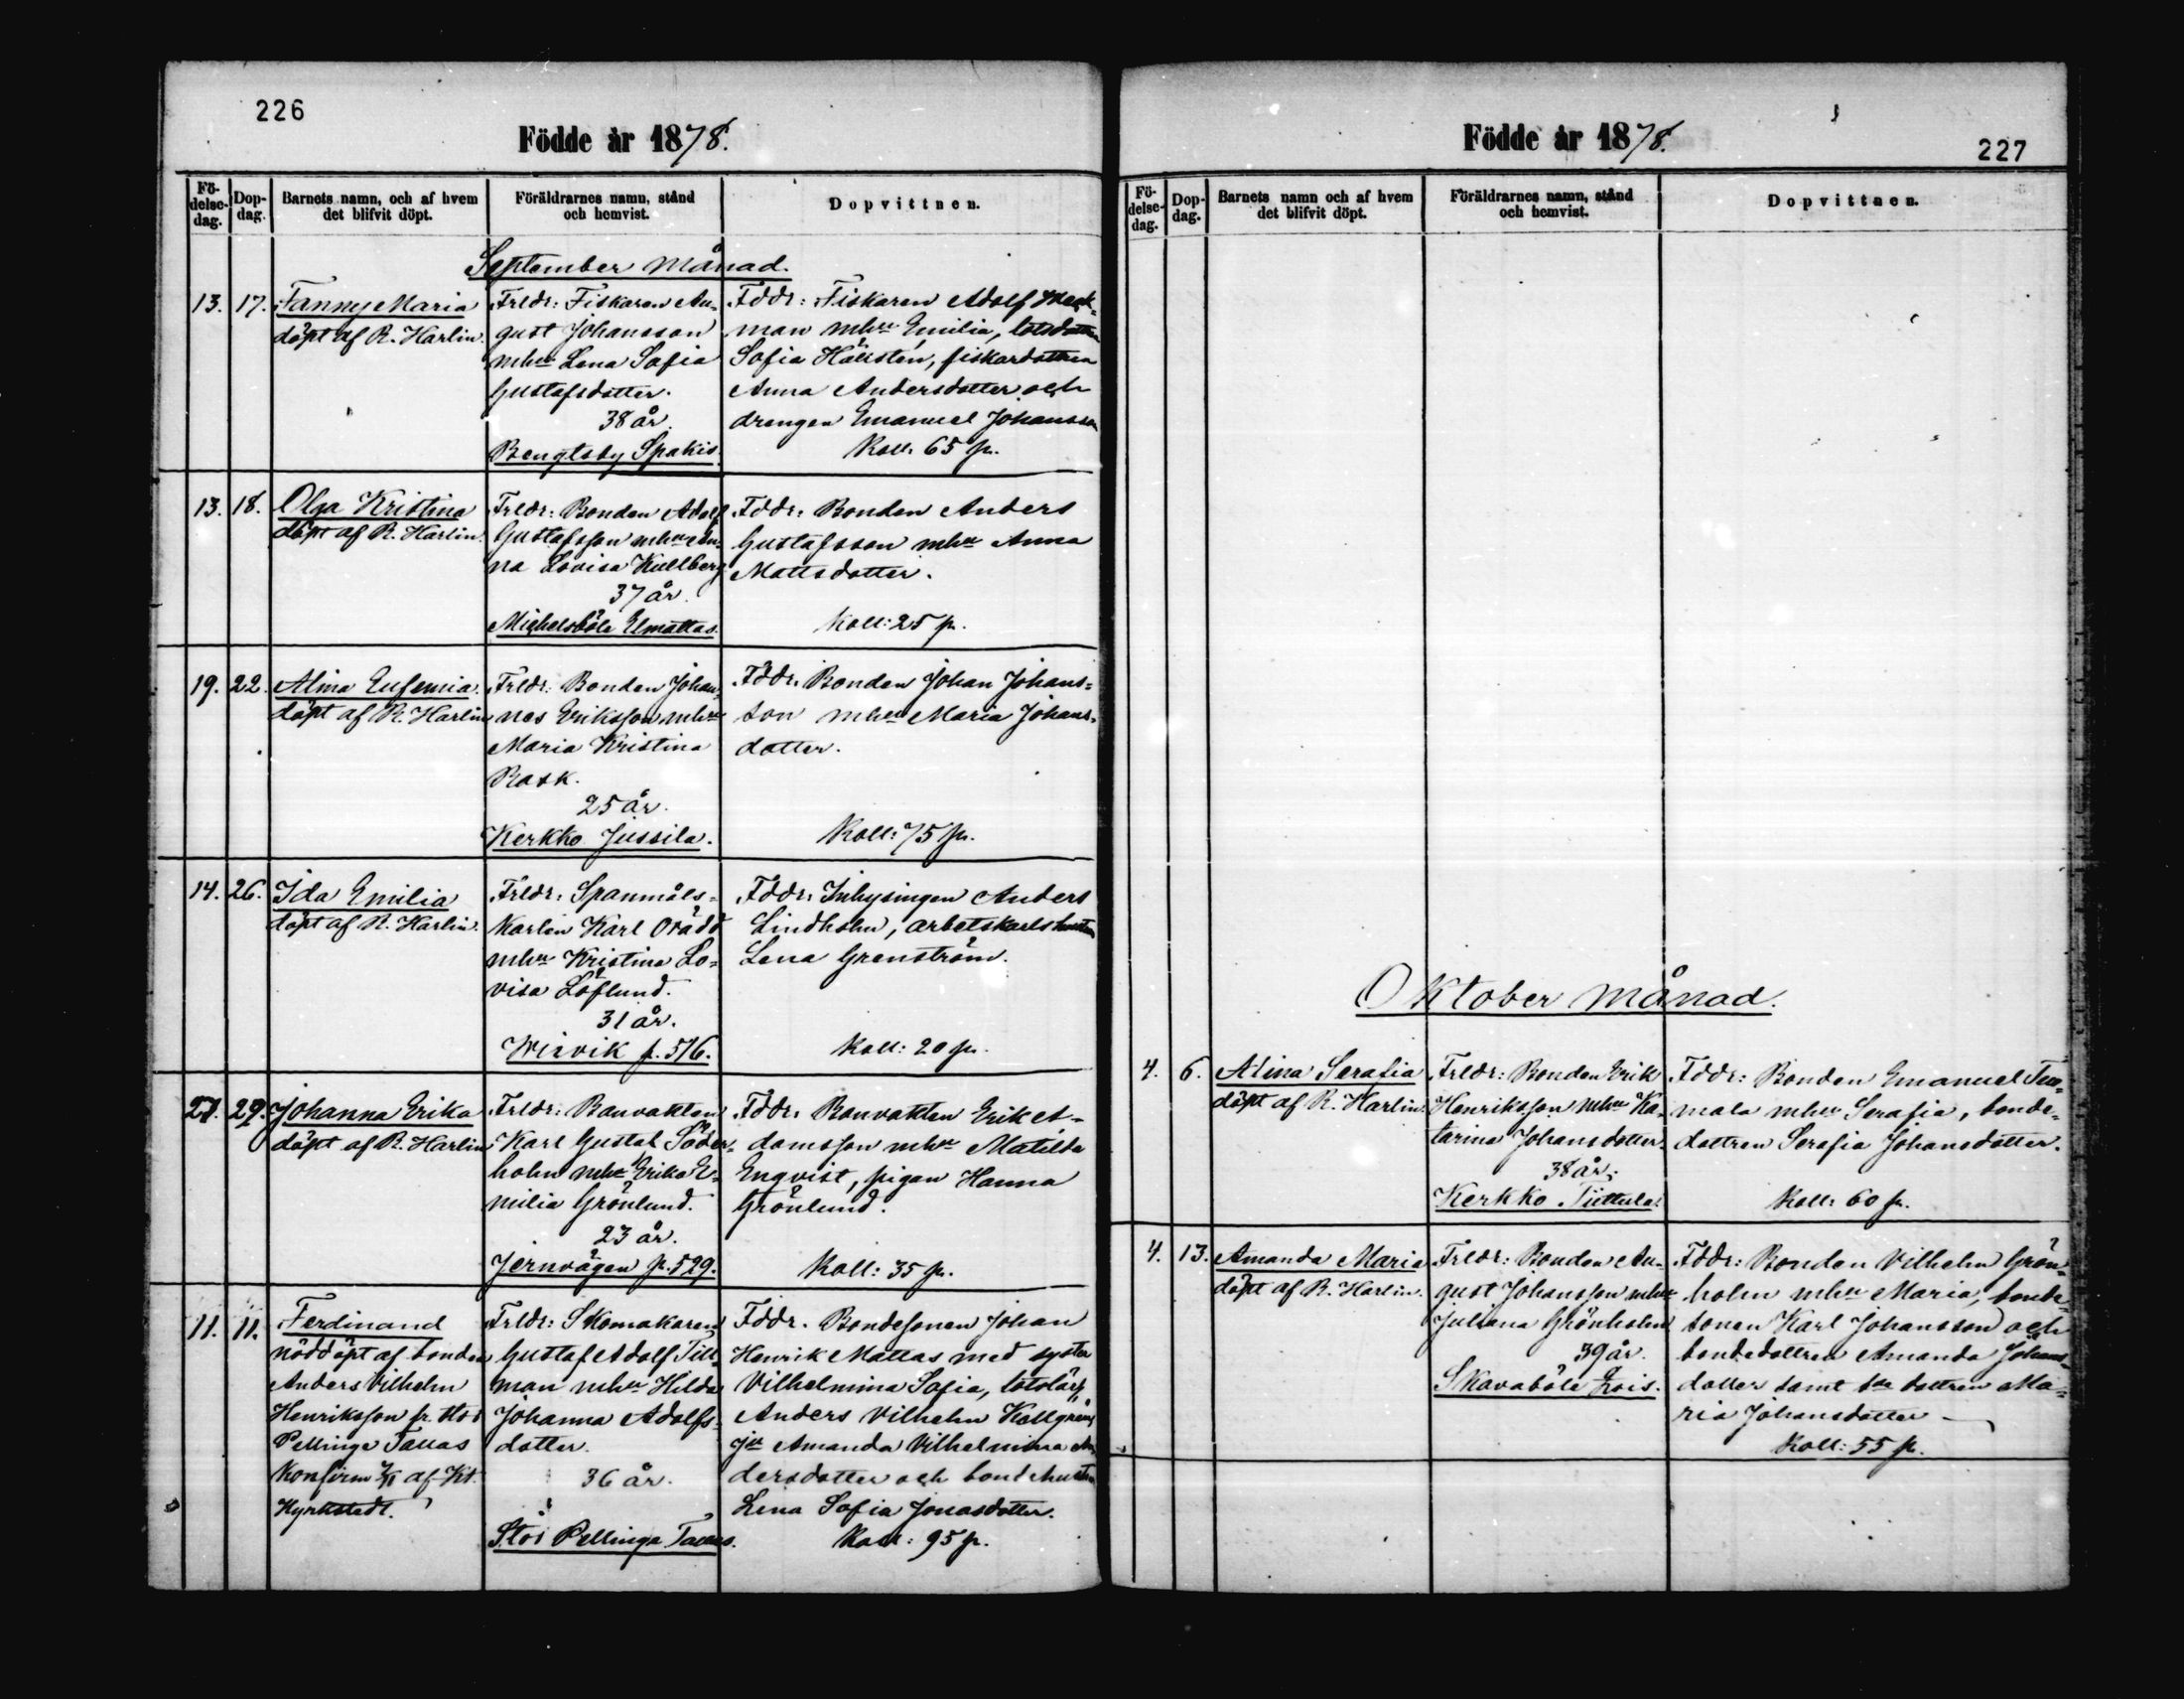 226
Födde år 1878.
Fö-
delse-
dag.
Dop-
dag.
Barnets namn, och af hvem
det blifvit döpt.
Föräldrarnes namn, stånd
och hemvist.
Dopvittnen.
September månad.
13. 17.
Fanny Maria
döpt af R. Harlin.
Frldr: Fiskaren Au-
gust Johansson
mhu Lena Sofia
Gustafsdotter.
38 år.
Bengtsby Spakis.
Fddr: Fiskaren Adolf
man mhu Emilia,
Sofia Hällsten, fiskardottren
Anna Andersdotter och
drengen Emanuel Johansson
Koll: 65 p.
13. 18.
Olga Kristina
döpt af R. Harlin.
Frldr: Bonden Adolf
Gustafsson mhu An-
na Lovisa Kullberg
37 år.
Michelsböle Elmattas.
Fddr: Bonden Anders
Gustafsson mhu Anna
Mattsdotter.
Koll: 25 p.
19. 22.
Alma Eufemia.
döpt af R. Harlin
Frldr: Bonden Johan-
nes Eriksson mhu
Maria Kristina
Rask.
25 år.
Kerkko Jussila.
Fddr: Bonden Johan Johans=
son mhu Maria Johans-
dotter.
Koll: 75 p.
14. 26.
Ida Emilia
döpt af R. Harlin.
Frldr: Spanmåls-
karlen Karl Orädd
mhu Kristina Lo=
visa Löflund.
31 år.
Wirvik p. 516.
Fddr: Inhysingen Anders
Lindholm, arbetskarlshustrun
Lena Grenström.
Koll: 20 p.
27. 29.
Johanna Erika
döpt af R. Harlin
Frldr: Banvakten
Karl Gustaf Söder-
holm mhu Erika E-
milia Grönlund.
23 år.
Jernvägen p. 529.
Fddr: Banvakten Erik A-
damsson mhu Matilda
Enqvist, pigan Hanna
Grönlund.
Koll: 35 p.
11. 11.
Ferdinand
nöddöpt af bonden
Anders Vilhelm
Henriksson fr. Stor
Pellinge Tallas
Konfirm af Kt.
Hyrkstedt.
Frldr: Skomakaren
Gustaf Adolf Till-
man mhu Hilda
Johanna Adolfs-
dotter.
36 år.
Stor Pellinge Tallas.
Fddr. Bondesonen Johan
Henrik Mattas med syster
Vilhelmina Sofia, lotslärl.
Anders Vilhelm Kallgren,
jn Amanda Vilhelmina An
dersdotter och bondehustrun
Lena Sofia Jonasdotter.
Koll: 95 p.
Födde år 1878.
227
Fö-
delse-
dag.
Dop-
dag.
Barnets namn och af hvem
det blifvit döpt.
Föräldrarnes namn, stånd
och hemvist.
Dopvittnen.
Oktober månad.
4. 6.
Alina Serafia
döpt af R. Harlin.
Frldr: Bonden Erik
Henriksson mhu Ka-
tarina Johansdotter.
38 år.
Kerkko Tüttula.
Fddr: Bonden Emanuel Tuo-
mala mhu Serafia, bonde-
dottren Serafia Johansdotter.
Koll: 60 p.
4. 13.
Amanda Maria
döpt af R. Harlin.
Frldr: Bonden Au-
gust Johansson mhu
Juliana Grönholm
39 år.
Skavaböle Frois.
Fddr: Bonden Vilhelm Grön-
holm mhu Maria, bonde-
sonen Karl Johansson och
bondedottren Amanda Johans-
dotter samt dottren Ma-
ria Johansdotter
Koll: 55 p.